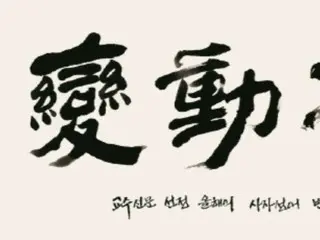 變動
교수신문 선정 올해의 사자성어